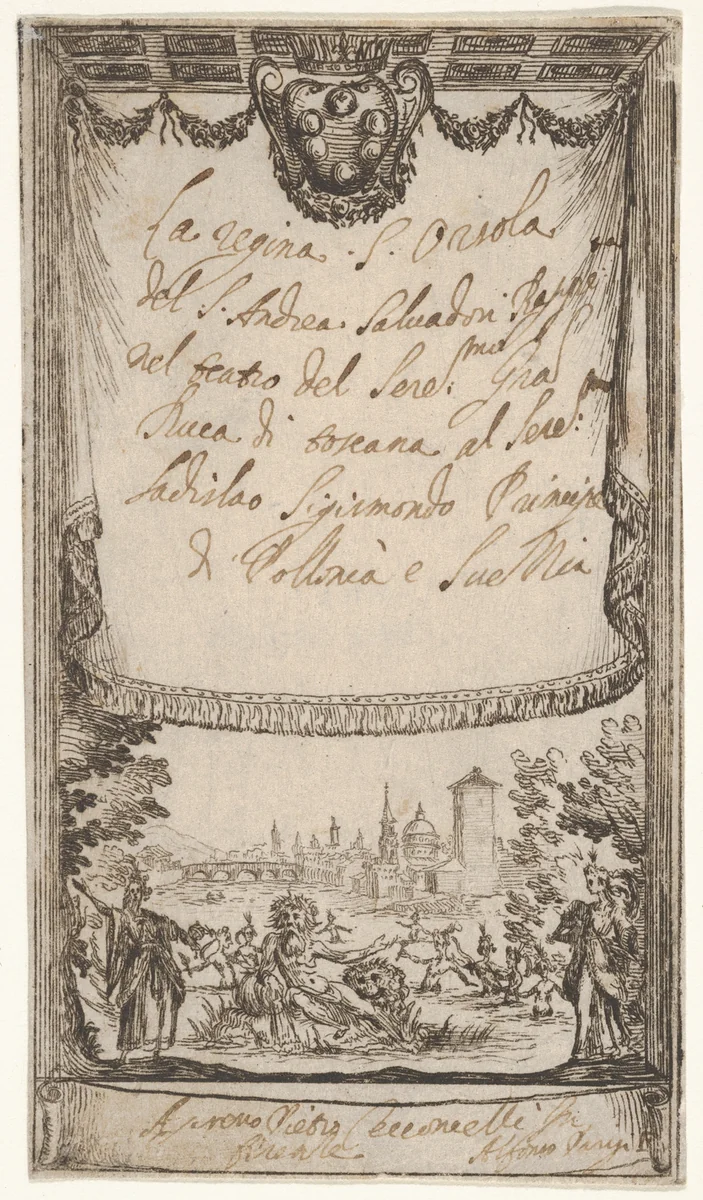 La regina S. Orsola
del S. Andrea Salvadori Rappre. ta
nel teatro del Sere:mo Gra
Duca di toscana al Sere:mo
Ladislao Sigismondo Principe
di Pollonia e Suettia
Pietro Cecconcelli In
firenze Alfonso Parigi F